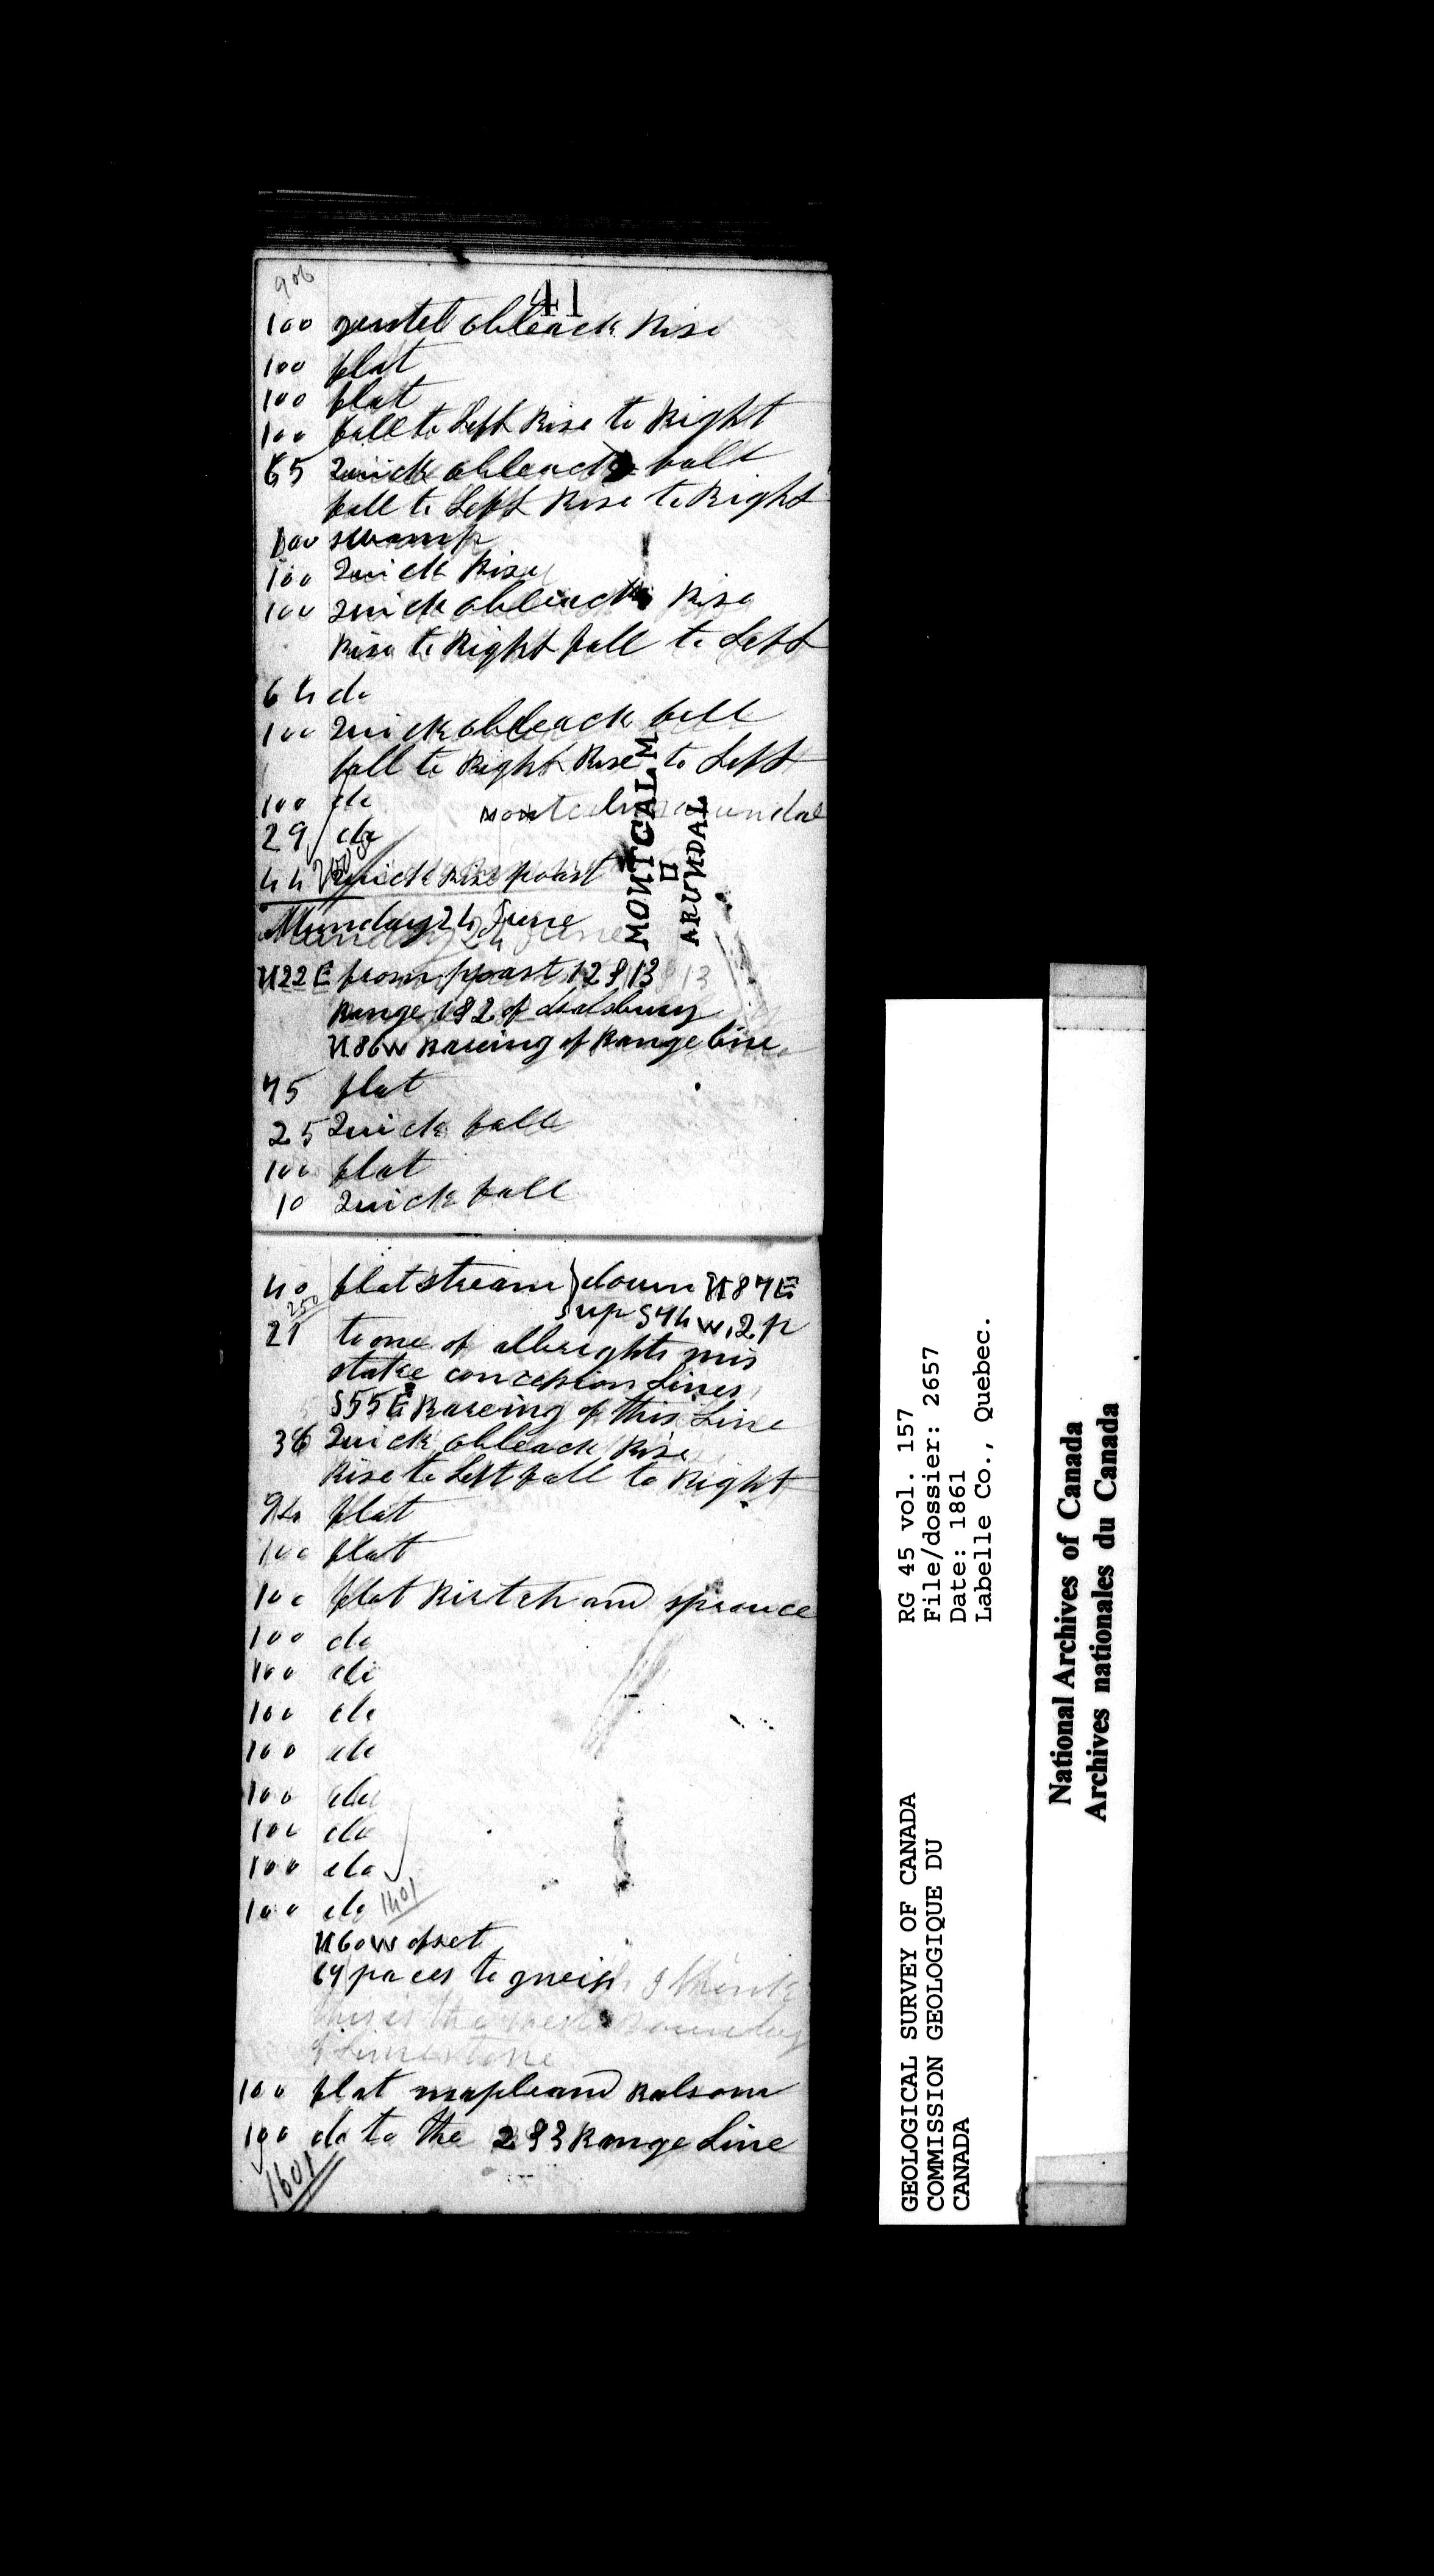 906
41
100 gentel obleack Rise
100 flat
100 flat
100 fall to Left Rise to Right
65 Quick obleack fall
fall to Left Rise to Right
100 swamp
100 Quick Rise
100 Quick obleack Rise
Rise to Right fall to Left
64 do
100 Quick obleack fall
fall to Right Rise to Left
100 do
29 do
44 Quick Rise poast
MONTCALM
ARUNDAL
Munday 24 June
N22E from poast 12 & 13
Range 1 & 2 of dsalsbury
N86W Bareing of Range Line
75 flat
25 Quick fall
100 flat
10 Quick fall
40 flat stream } down N87E
250 up S74W, 2 p
21 to one of allbrights mis
stake concession Lines
S55E Bareing of this Line
36 Quick obleack Rise
Rise to Left fall to Right
94 flat
100 flat
100 flat Birtch and sprouce
100 do
100 do
100 do
100 do
100 do
100 do
100 do
100 do 1401
N60W ofset
67 paces to gneiss I think
this is the west Boundey
of Limestone
100 flat maple and Balsom
100 do to the 2 & 3 Range Line
1601
RG 45 vol. 157
File/dossier: 2657
Date: 1861
Labelle Co., Quebec.
GEOLOGICAL SURVEY OF CANADA
COMMISSION GEOLOGIQUE DU
CANADA
National Archives of Canada
Archives nationales du Canada